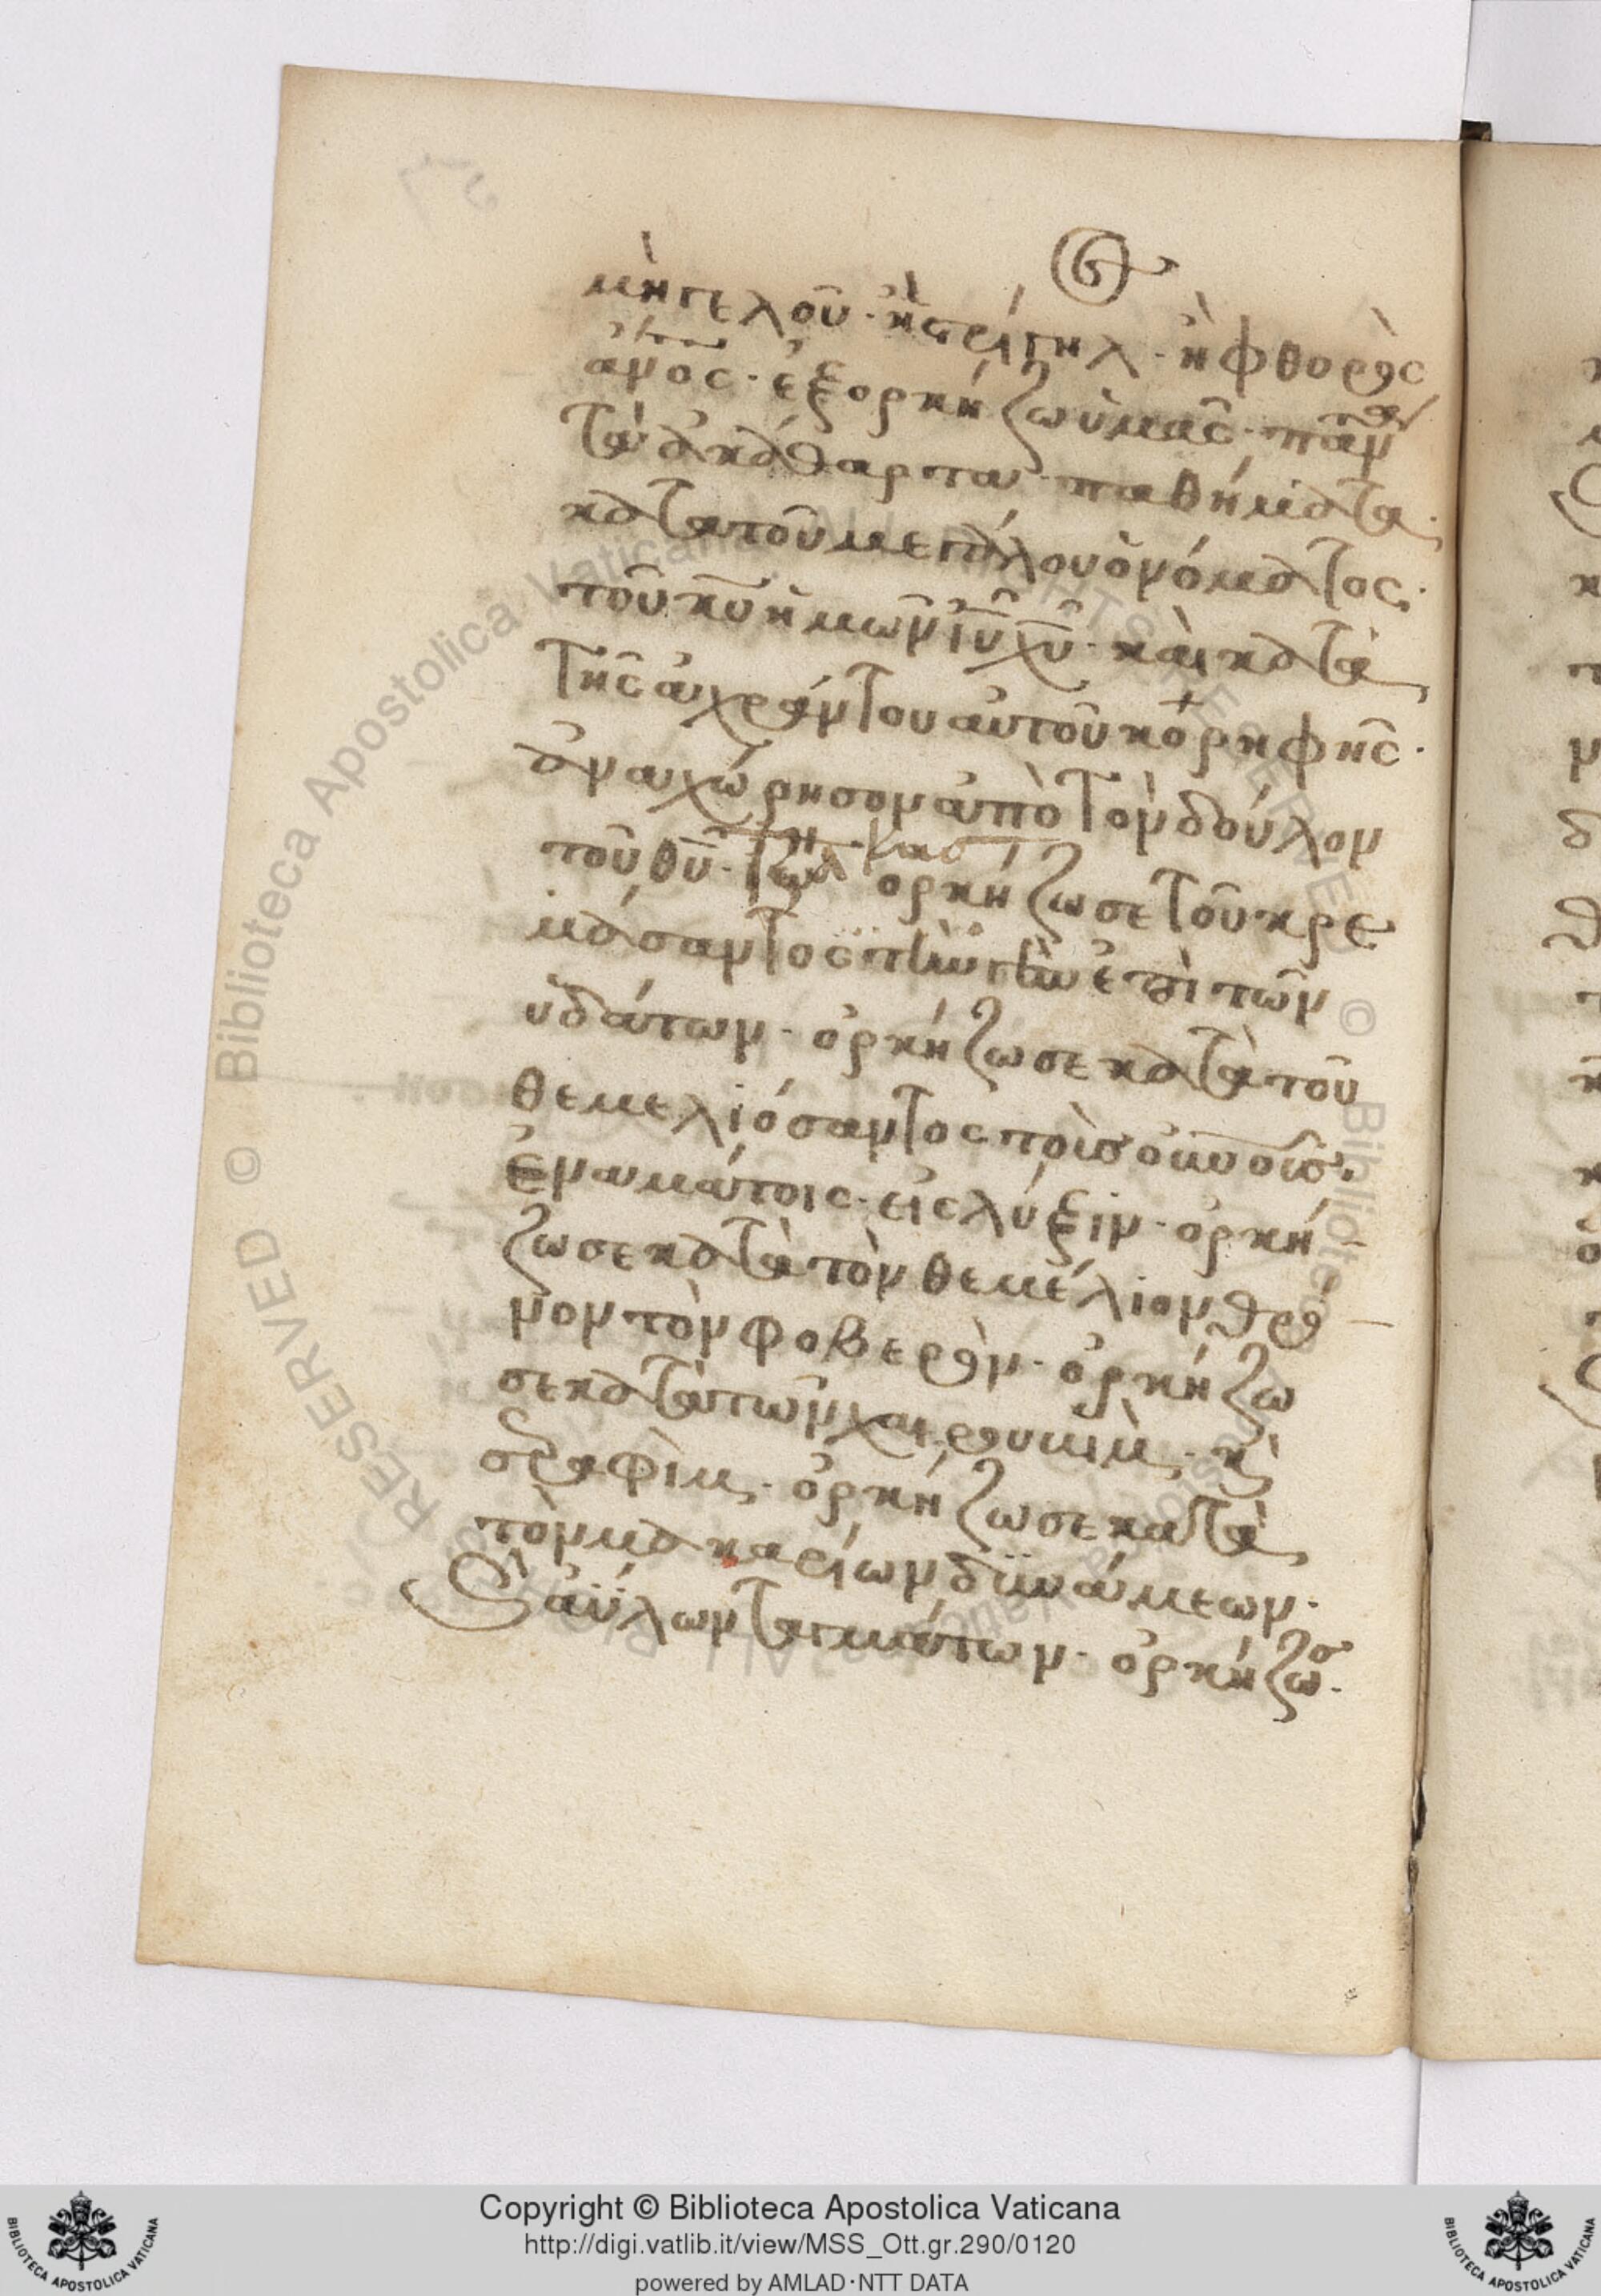 μὴτελοῦ· ἢ ϛρίγηλ· ἢ φθορὸς
ἄν̅ο̅ς· ἐξορκήζω ὑμᾶς· πᾶν
τὰ ἀκάθαρτα παθήματα
κατὰ τοῦ μεγάλου ὀνόματος·
τοῦ κ̅υ̅ ἡμῶν ι̅υ̅ χ̅υ̅· καὶ κατὰ
τῆς ἀχράντου αὐτοῦ κορηφῆς·
ἀναχώρησον ἀπὸ τὸν δούλον
τοῦ θ̅υ̅· ὁρκήζω σε τοῦ κρε
μάσαντος τὴν γῆν ἐπὶ τῶν
ὑδάτων· ὁρκήζω σε κατὰ τοῦ
θεμελιόσαντος τοῖς
εἰς λύξιν· ὁρκή
ζω σε κατὰ τὸν θεμέλιον θρό
νον τὸν φοβερὸν· ὁρκήζω
σε κατὰ τῶν χαιρουμὶμ· κὲ
σεραφὶμ· ὁρκήζω σε κατὰ
τὸν μακαρίων δϋνάμεων·
ἀΰλων ταγμάτων· ὁρκήζω σ
Copyright © Biblioteca Apostolica Vaticana
http://digi.vatlib.it/view/MSS_Ott.gr.290/0120
powered by AMLAD·NTT DATA